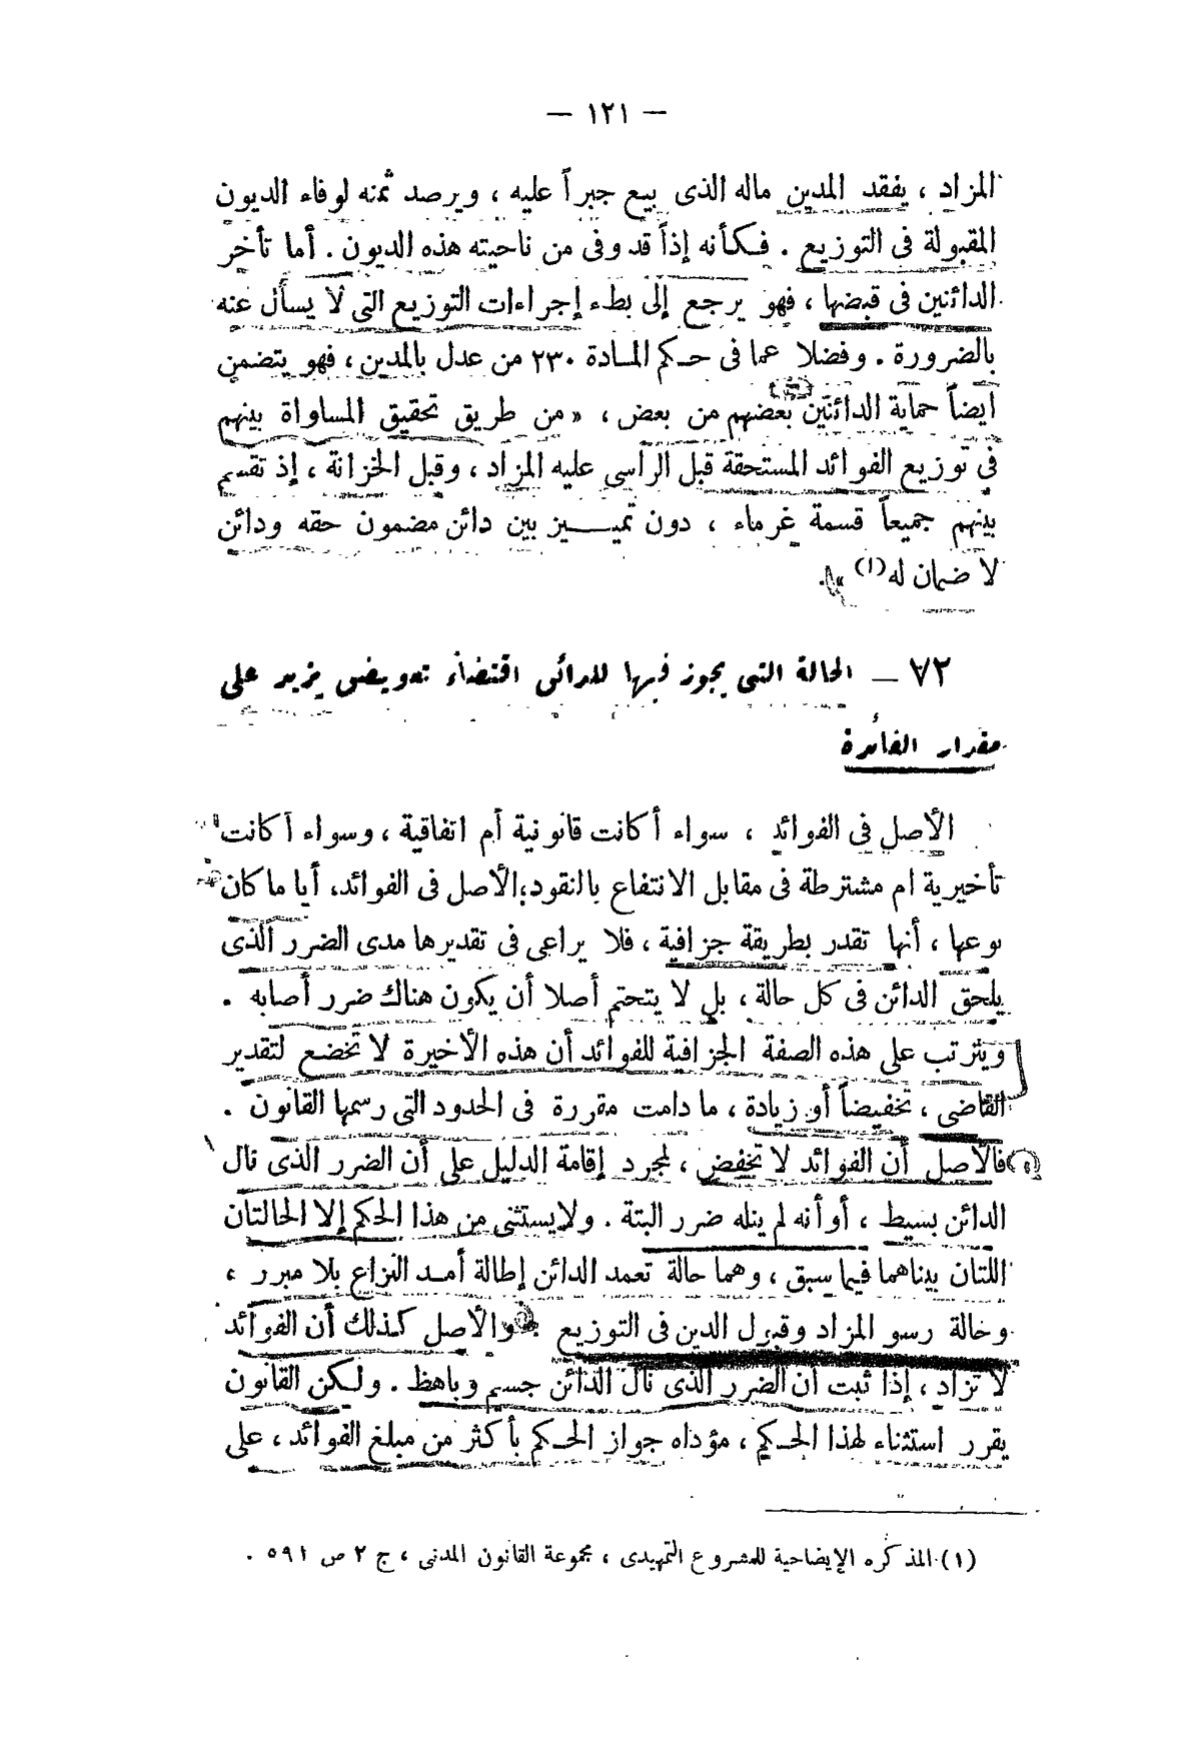 — ١٢١ —
المزاد ، يفقد المدين ماله الذى بيع جبراً عليه ، ويرصد ثمنه لوفاء الديون
المقبولة فى التوزيع . فكأنه إذاً قد وفى من ناحيته هذه الديون . أما تأخر
الدائنين فى قبضها ، فهو يرجع إلى بطء إجراءات التوزيع التى لا يسأل عنه
بالضرورة . وفضلا عما فى حكم المادة ٢٣٠ من عدل بالمدين ، فهو يتضمن
أيضاً حماية الدائنين بعضهم من بعض ، « من طريق تحقيق المساواة بينهم
فى توزيع الفوائد المستحقة قبل الراسى عليه المزاد ، وقبل الخزانة ، إذ تقسم
بينهم جميعاً قسمة غرماء ، دون تمييز بين دائن مضمون حقه ودائن
لا ضمان له (١) » .
٧٢ — الحالة التى يجوز فيها للدائى اقتضاء تعويض يزيد على
مقدار الفائدة
الأصل فى الفوائد ، سواء أكانت قانونية أم اتفاقية ، وسواء أكانت
تأخيرية ام مشترطة فى مقابل الانتفاع بالنقود ؛ الأصل فى الفوائد، أيا ما كان
نوعها ، أنها تقدر بطريقة جزافية ، فلا يراعى فى تقديرها مدى الضرر الذى
يلحق الدائن فى كل حالة ، بل لا يتحتم أصلا أن يكون هناك ضرر أصابه .
ويترتب على هذه الصفة الجزافية للفوائد أن هذه الأخيرة لا تخضع لتقدير
القاضى ، تخفيضاً أو زيادة ، ما دامت مقررة فى الحدود التى رسمها القانون .
فالأصل أن الفوائد لا تخفض ، لمجرد إقامة الدليل على أن الضرر الذى نال
الدائن بسيط ، أو أنه لم ينله ضرر البتة . ولا يستثنى من هذا الحكم إلا الحالتان
اللتان بيناهما فيما سبق ، وهما حالة تعمد الدائن إطالة أمد النزاع بلا مبرر ،
وحالة رسو المزاد وقبول الدين فى التوزيع . والأصل كذلك أن الفوائد
لا تزاد ، إذا ثبت أن الضرر الذى نال الدائن جسيم وباهظ . ولكن القانون
يقرر استثناء لهذا الحكم ، مؤداه جواز الحكم بأكثر من مبلغ الفوائد ، على
(١) المذكره الإيضاحية للمشروع التمهيدى ، مجموعة القانون المدنى ، ج ٢ ص ٥٩١ .